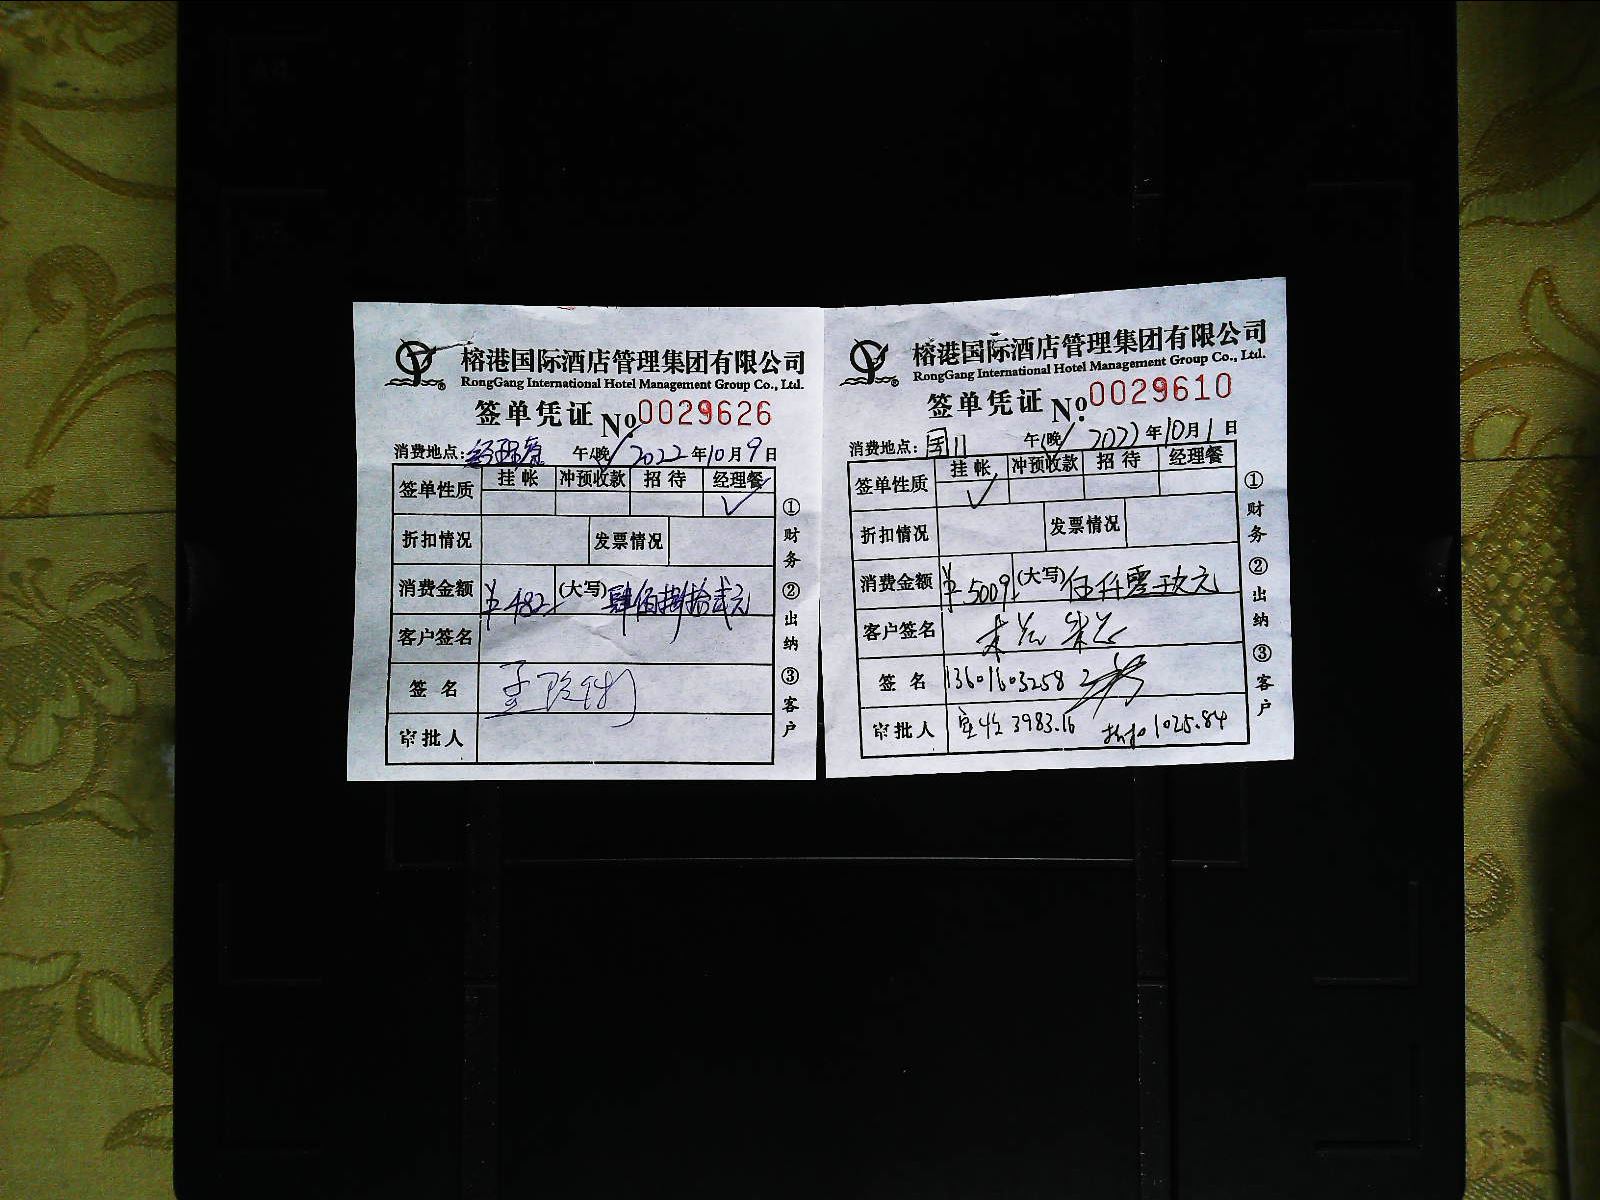 榕港国际酒店管理集团有限公司
RongGang International Hotel Management Group Co., Ltd.
签单凭证 No. 0029626
消费地点: 午/晚 2022年10月9日
签单性质 挂帐 冲预收款 招待 经理餐
折扣情况 发票情况
消费金额 ¥482 (大写) 肆佰捌拾贰元
客户签名
签名
审批人
① 财务 ② 出纳 ③ 客户
榕港国际酒店管理集团有限公司
RongGang International Hotel Management Group Co., Ltd.
签单凭证 No. 0029610
消费地点: 午/晚 2022年10月1日
签单性质 挂帐 冲预收款 招待 经理餐
折扣情况 发票情况
消费金额 ¥5009 (大写) 伍仟零玖元
客户签名
签名 13601603258
审批人 实收 3983.16 折扣 1025.84
① 财务 ② 出纳 ③ 客户